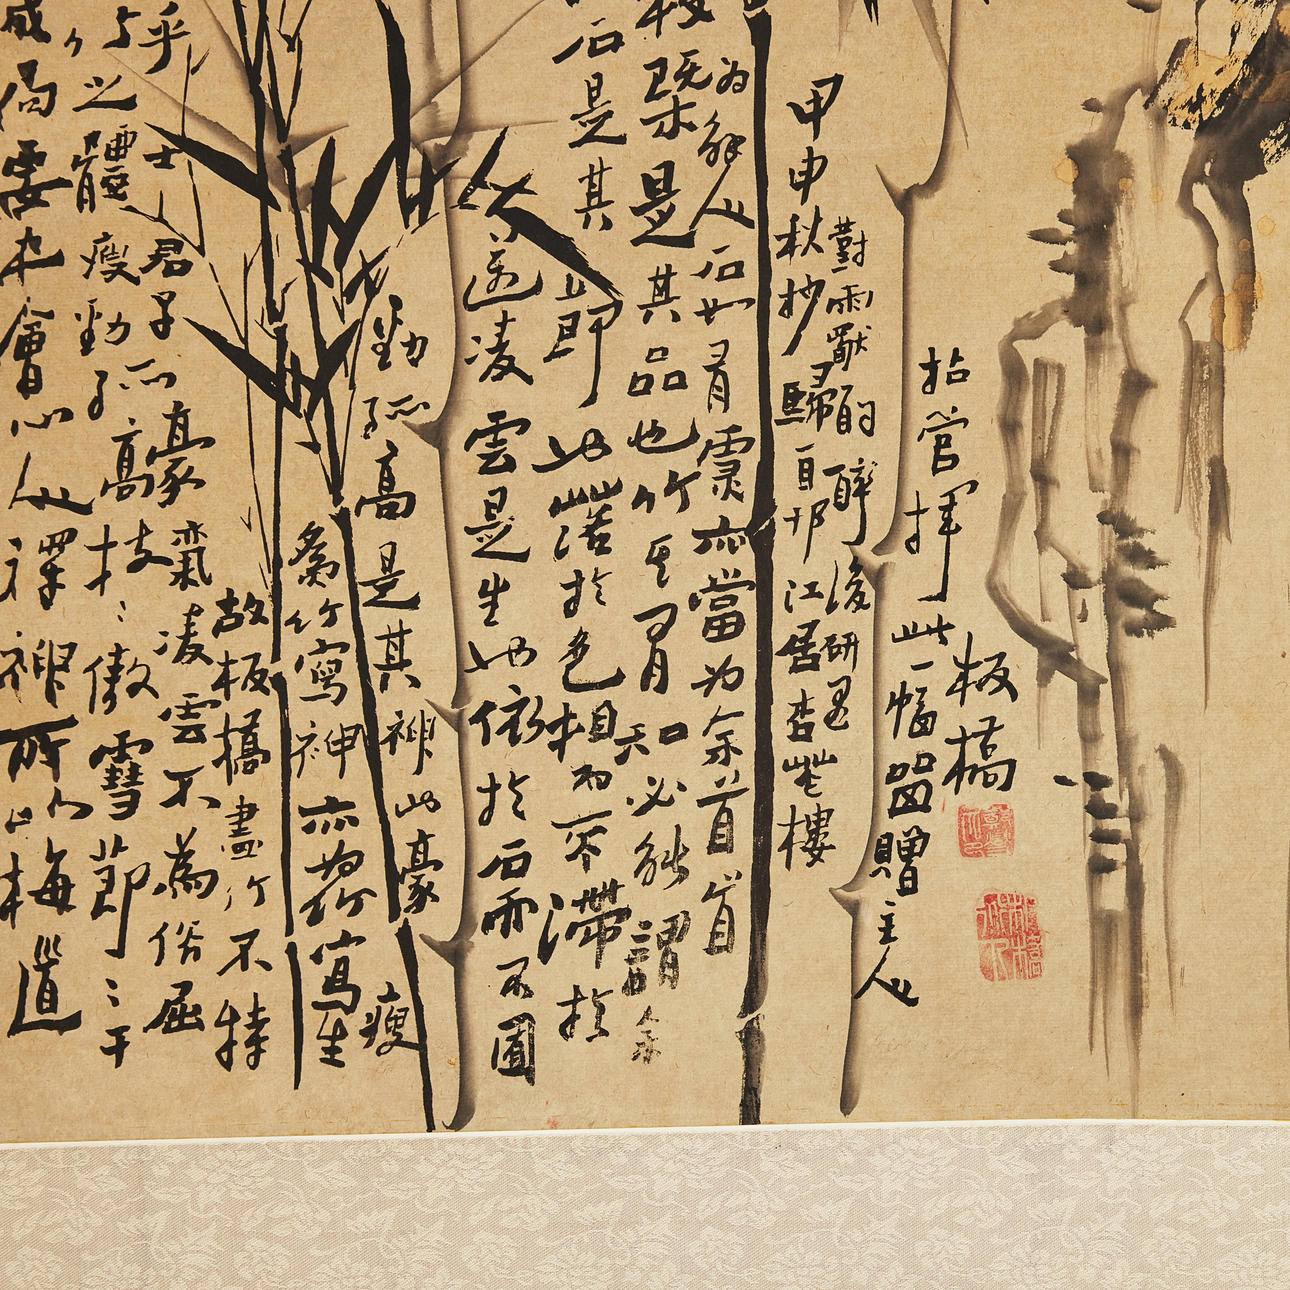 成局要在會心人得神所以梅道
之體瘦勁孤高枝枝傲雪節節干
乎士君子豪氣凌雲不為俗屈
故板橋畫竹不特
為竹寫神亦為竹寫生瘦
勁孤高是其神也豪
邁凌雲是生也依於石而不囿
石是其節也落於色相而不滯於
梗概是其品也竹其有知必能謂余
為解人石如有靈亦當為余首肯
甲申秋杪歸自邗江居杏花樓
對雨獨酌醉後研墨
拈管揮此一幅留贈主人
板橋